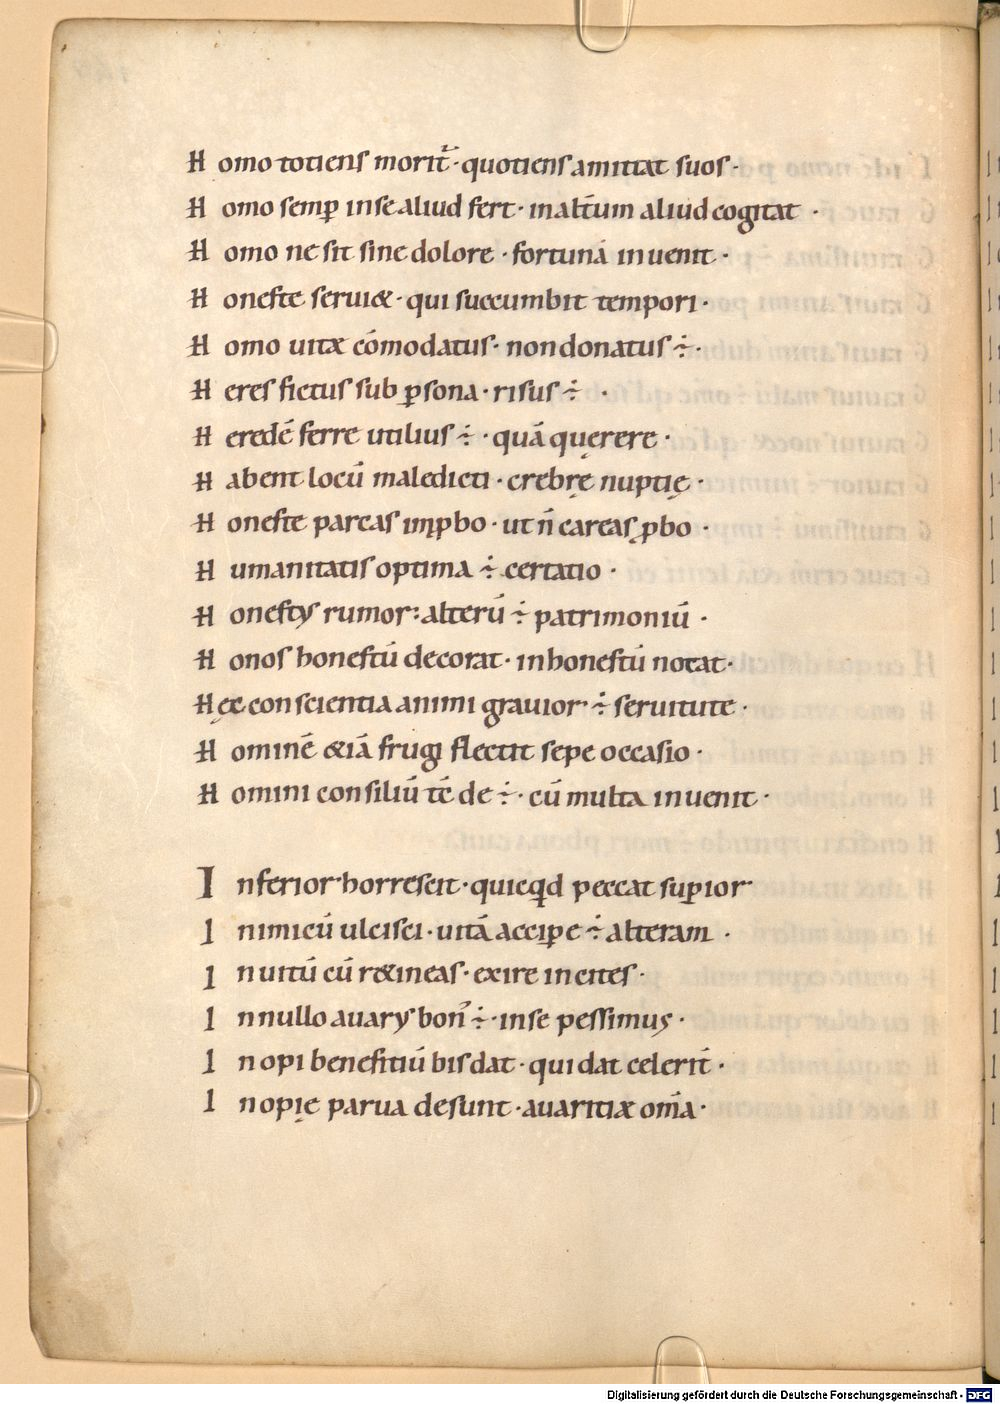 Homo totiens morit̄· quotiens amittat suos·
Homo semp̱ in se aliud fert· in alt̄um aliud cogitat ·
Homo ne sit sine dolore · fortunā inuenit ·
Honeste seruit& · qui succumbit tempori·
Homo uitæ cōmodatus· non donatus ÷·
Heres fictus sub p̱sona· risus ÷ ·
Heredē ferre utilius ÷ · quā quęrere ·
Habent locū maledicti · crebrę nuptię ·
Honeste parcas imp̱bo · ut n̄ careas ꝓbo ·
Humanitatis optima ÷ certatio ·
Honestꝰ rumor: alterū ÷ patrimoniū ·
Honos honestū decorat· inhonestū notat·
Hęc conscientia animi grauior ÷ seruitute ·
Hominē &iā frugi flectit sepe occasio ·
Homini consiliū tē de ÷· cū multa inuenit ·
Inferior horrescit· quicq̄d peccat sup̱ior
Inimicū ulcisci· uitā accip̱e ÷ alteram ·
In uitū cū r&ineas· exire incites·
In nullo auarꝰ bon᷒ ÷· in se pessimꝰ ·
Inopi benefitiū bis dat· qui dat celerit̄ ·
Inopię parua desunt· auaritiæ om̄a·
Digitalisierung gefördert durch die Deutsche Forschungsgemeinschaft · DFG